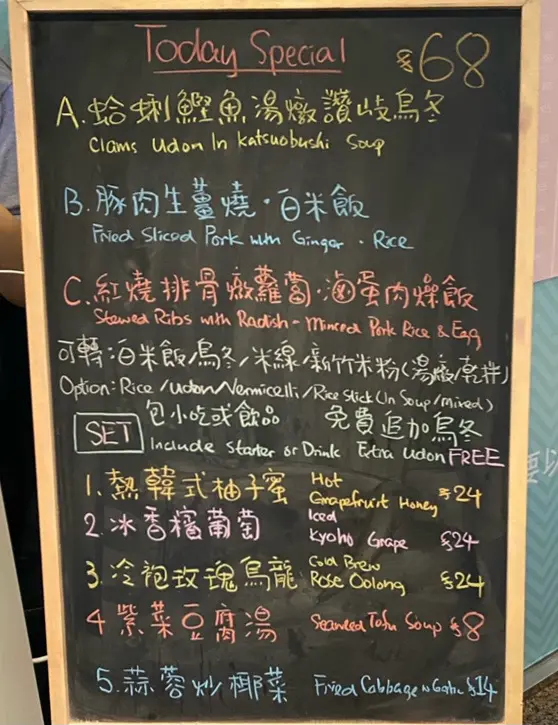 Today Special $68
A. 蛤蜊鰹魚湯燉讚岐烏冬
Clams Udon In Katsuobushi Soup
B. 豚肉生薑燒·白米飯
Fried Sliced Pork with Ginger · Rice
C. 紅燒排骨燉蘿蔔·滷蛋肉燥飯
Stewed Ribs with Radish - Minced Pork Rice & Egg
可轉:白米飯/烏冬/米線/新竹米粉(湯燉/乾拌)
Option: Rice /Udon/Vermicelli/Rice Stick(In Soup/Mixed)
SET 包小吃或飲品 免費追加烏冬
Include Starter or Drink Extra Udon FREE
1. 熱韓式柚子蜜 Hot Grapefruit Honey $24
2. 冰香檳葡萄 Iced Kyoho Grape $24
3. 冷泡玫瑰烏龍 Cold Brew Rose Oolong $24
4 紫菜豆腐湯 Seaweed Tofu Soup $8
5. 蒜蓉炒椰菜 Fried Cabbage w Garlic $14